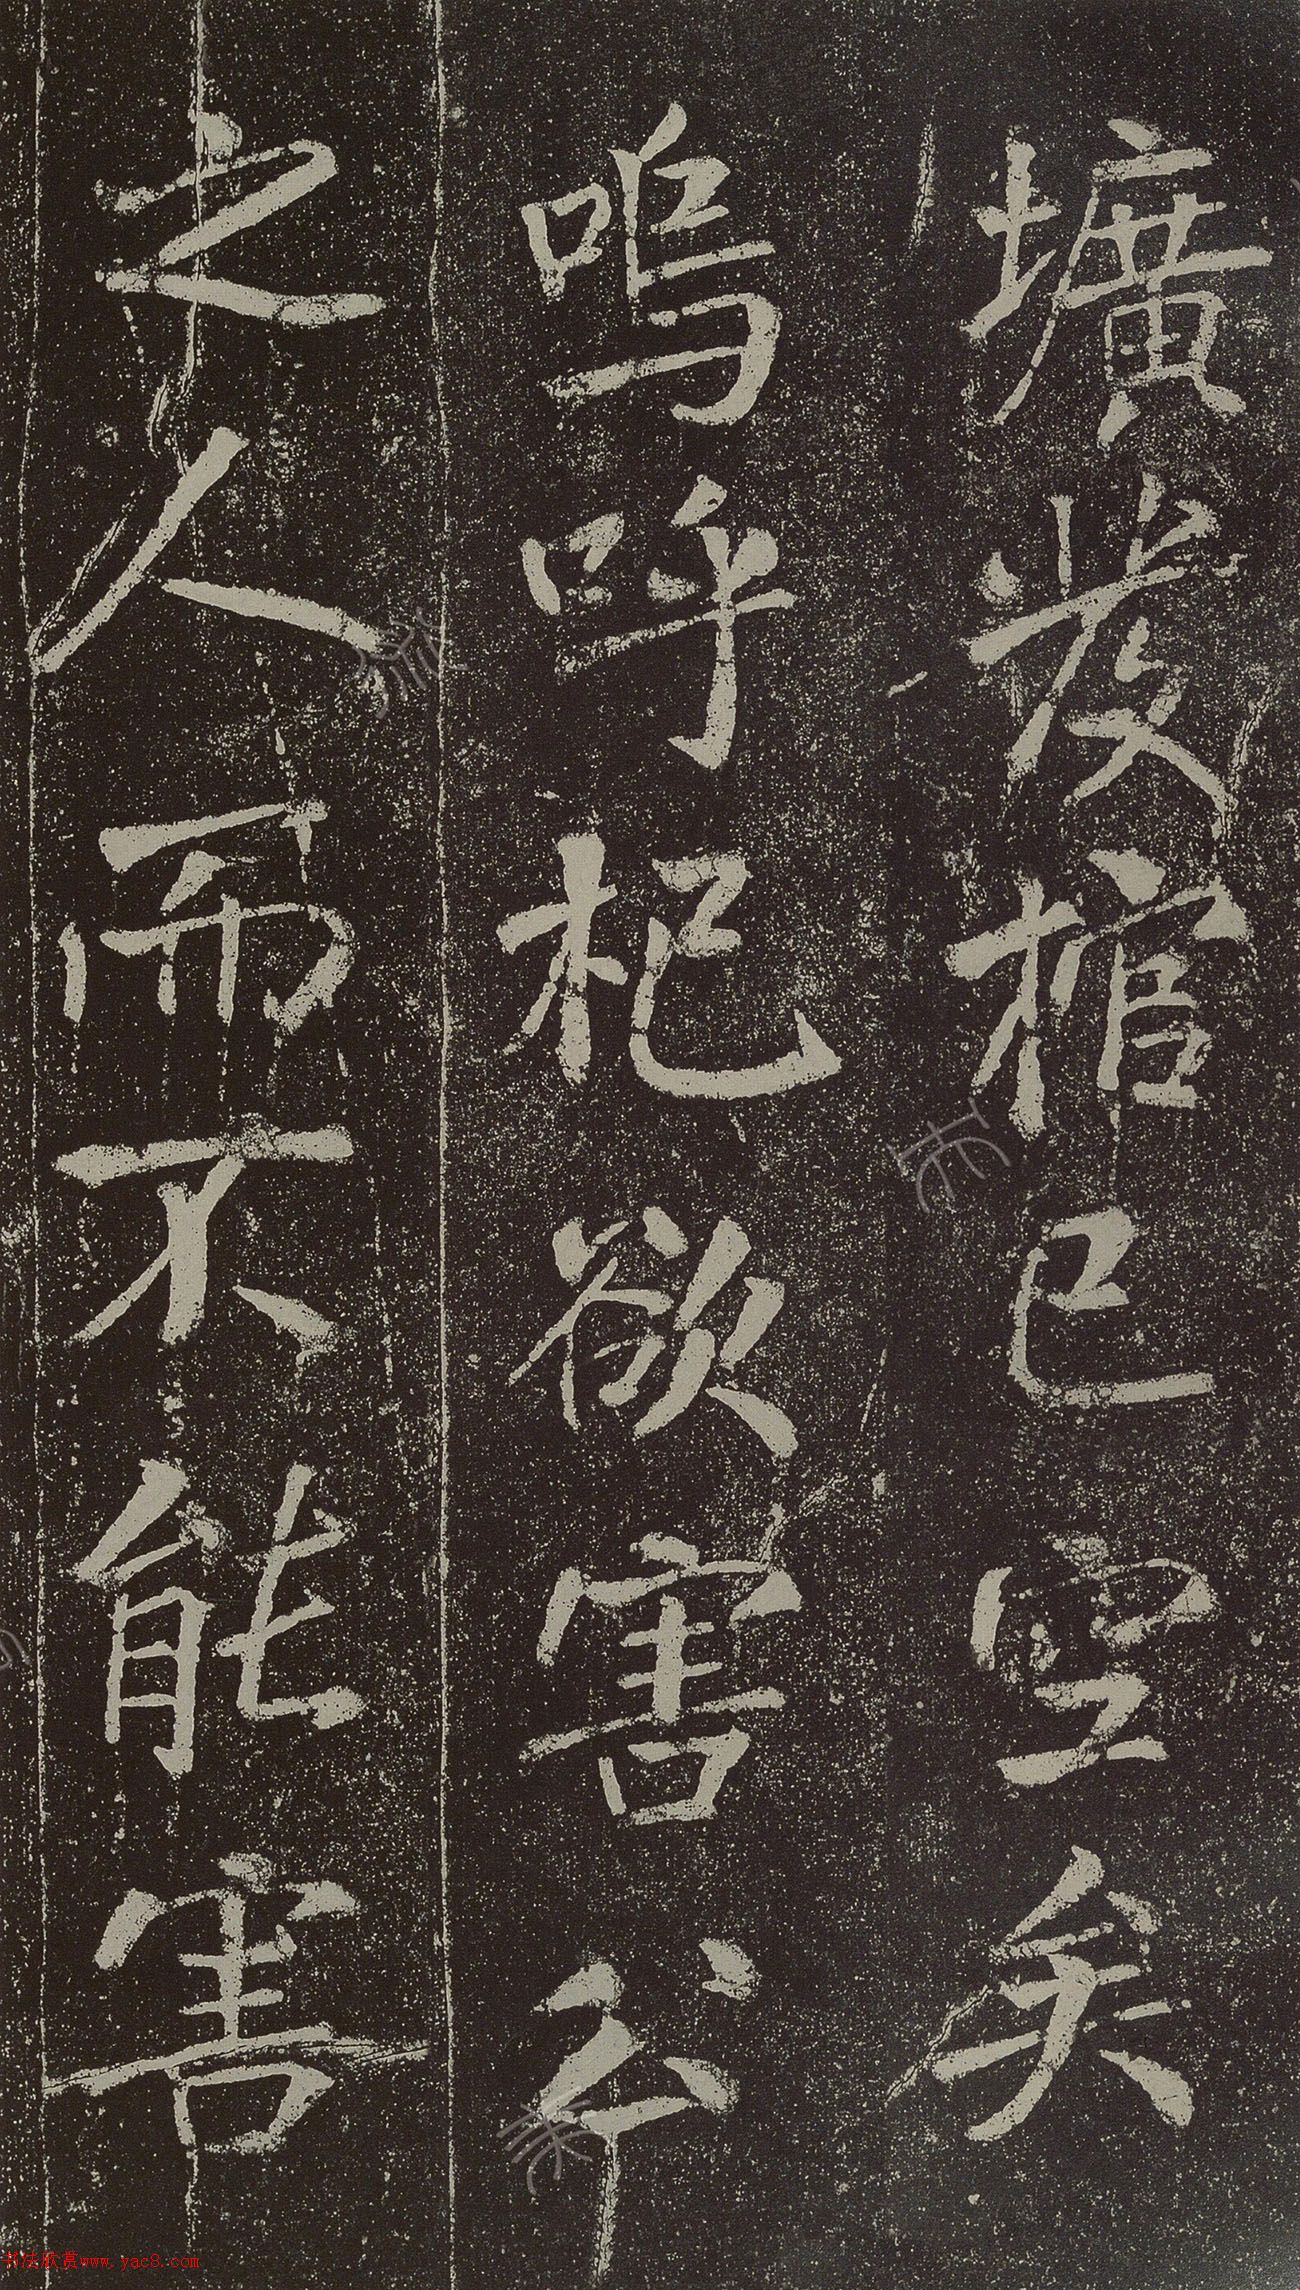 壙發棺已空矣
嗚呼杞欲害公
之人而不能害
书法欣赏www.yac8.com